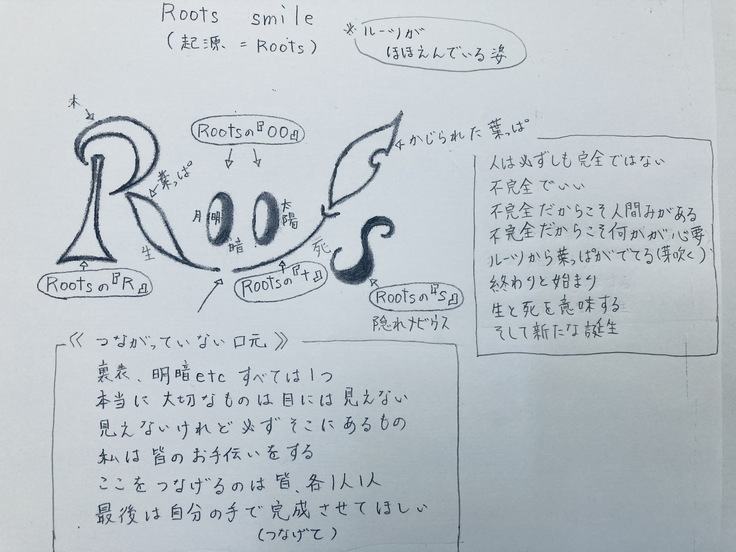 Roots smile
(起源 = Roots)
※ ルーツが
ほほえんでいる姿
木
葉っぱ
Rootsの『OO』
かじられた葉っぱ
月
明
太陽
暗
生
死
Rootsの『R』
Rootsの『t』
Rootsの『S』
隠れメビウス
人は必ずしも完全ではない
不完全でいい
不完全だからこそ人間みがある
不完全だからこそ何かが心要
ルーツから葉っぱがでてる(芽吹く)
終わりと始まり
生と死を意味する
そして新たな誕生
《 つながっていない口元 》
裏表、明暗etc すべては1つ
本当に大切なものは目には見えない
見えないけれど必ずそこにあるもの
私は皆のお手伝いをする
ここをつなげるのは皆、各1人1人
最後は自分の手で完成させてほしい
(つなげて)